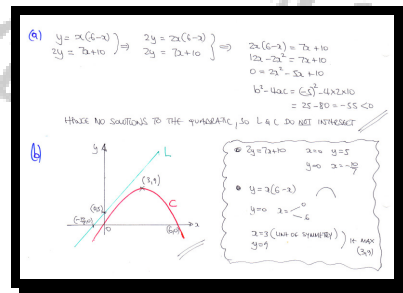 (a) y = x(6-x) } ⇒ 2y = 2x(6-x) } ⇒ 2x(6-x) = 7x+10
2y = 7x+10 2y = 7x+10 12x - 2x² = 7x+10
0 = 2x² - 5x + 10
b² - 4ac = (-5)² - 4×2×10
= 25 - 80 = -55 < 0
HENCE NO SOLUTIONS TO THE QUADRATIC, SO L & C DO NOT INTERSECT
(b)
y
L
(3,9)
C
(0,5)
(-10/7,0)
O
(6,0)
x
2y = 7x+10 x=0 y=5
y=0 x=-10/7
y = x(6-x)
y=0 x= 0
6
x=3 (LINE OF SYMMETRY)
y=9
IE MAX
(3,9)